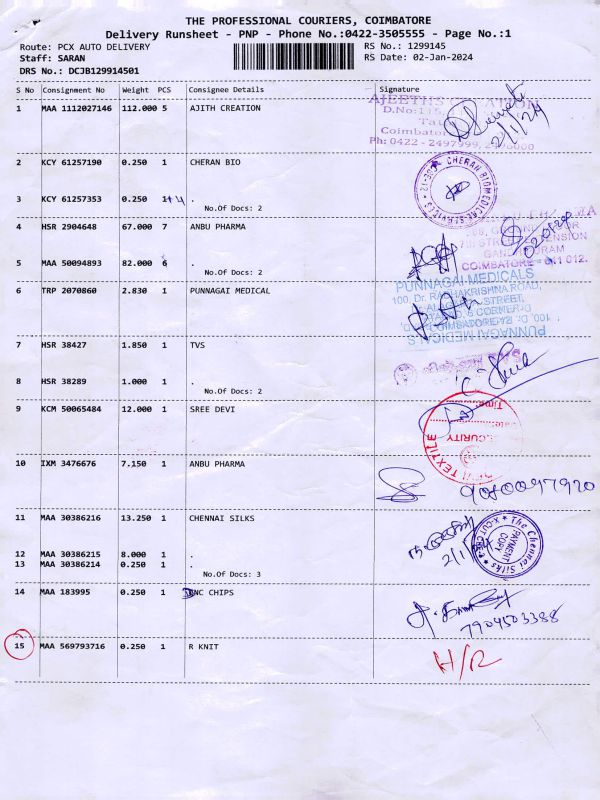 THE PROFESSIONAL COURIERS, COIMBATORE
Delivery Runsheet - PNP - Phone No.:0422-3505555 - Page No.:1
Route: PCX AUTO DELIVERY RS No.: 1299145
Staff: SARAN RS Date: 02-Jan-2024
DRS No.: DCJB129914501
S No Consignment No Weight PCS Consignee Details Signature
1 MAA 1112027146 112.000 5 AJITH CREATION
2/1/24
2 KCY 61257190 0.250 1 CHERAN BIO
CHERAN BIOMEDICAL SERVICES
3 KCY 61257353 0.250 1+4 .
No.Of Docs: 2
4 HSR 2904648 67.000 7 ANBU PHARMA
5 MAA 50094893 82.000 6 .
No.Of Docs: 2
COIMBATORE - 641 012.
6 TRP 2070860 2.830 1 PUNNAGAI MEDICAL
PUNNAGAI MEDICALS
100, Dr. RADHAKRISHNA ROAD,
PUNNAGAI MEDICALS
7 HSR 38427 1.850 1 TVS
8 HSR 38289 1.000 1 .
No.Of Docs: 2
9 KCM 50065484 12.000 1 SREE DEVI
10 IXM 3476676 7.150 1 ANBU PHARMA
11 MAA 30386216 13.250 1 CHENNAI SILKS
The Chennai Silks
PAYMENT
COPY
12 MAA 30386215 8.000 1 .
13 MAA 30386214 0.250 1 .
No.Of Docs: 3
14 MAA 183995 0.250 1 DNC CHIPS
7904503388
15 MAA 569793716 0.250 1 R KNIT H/R